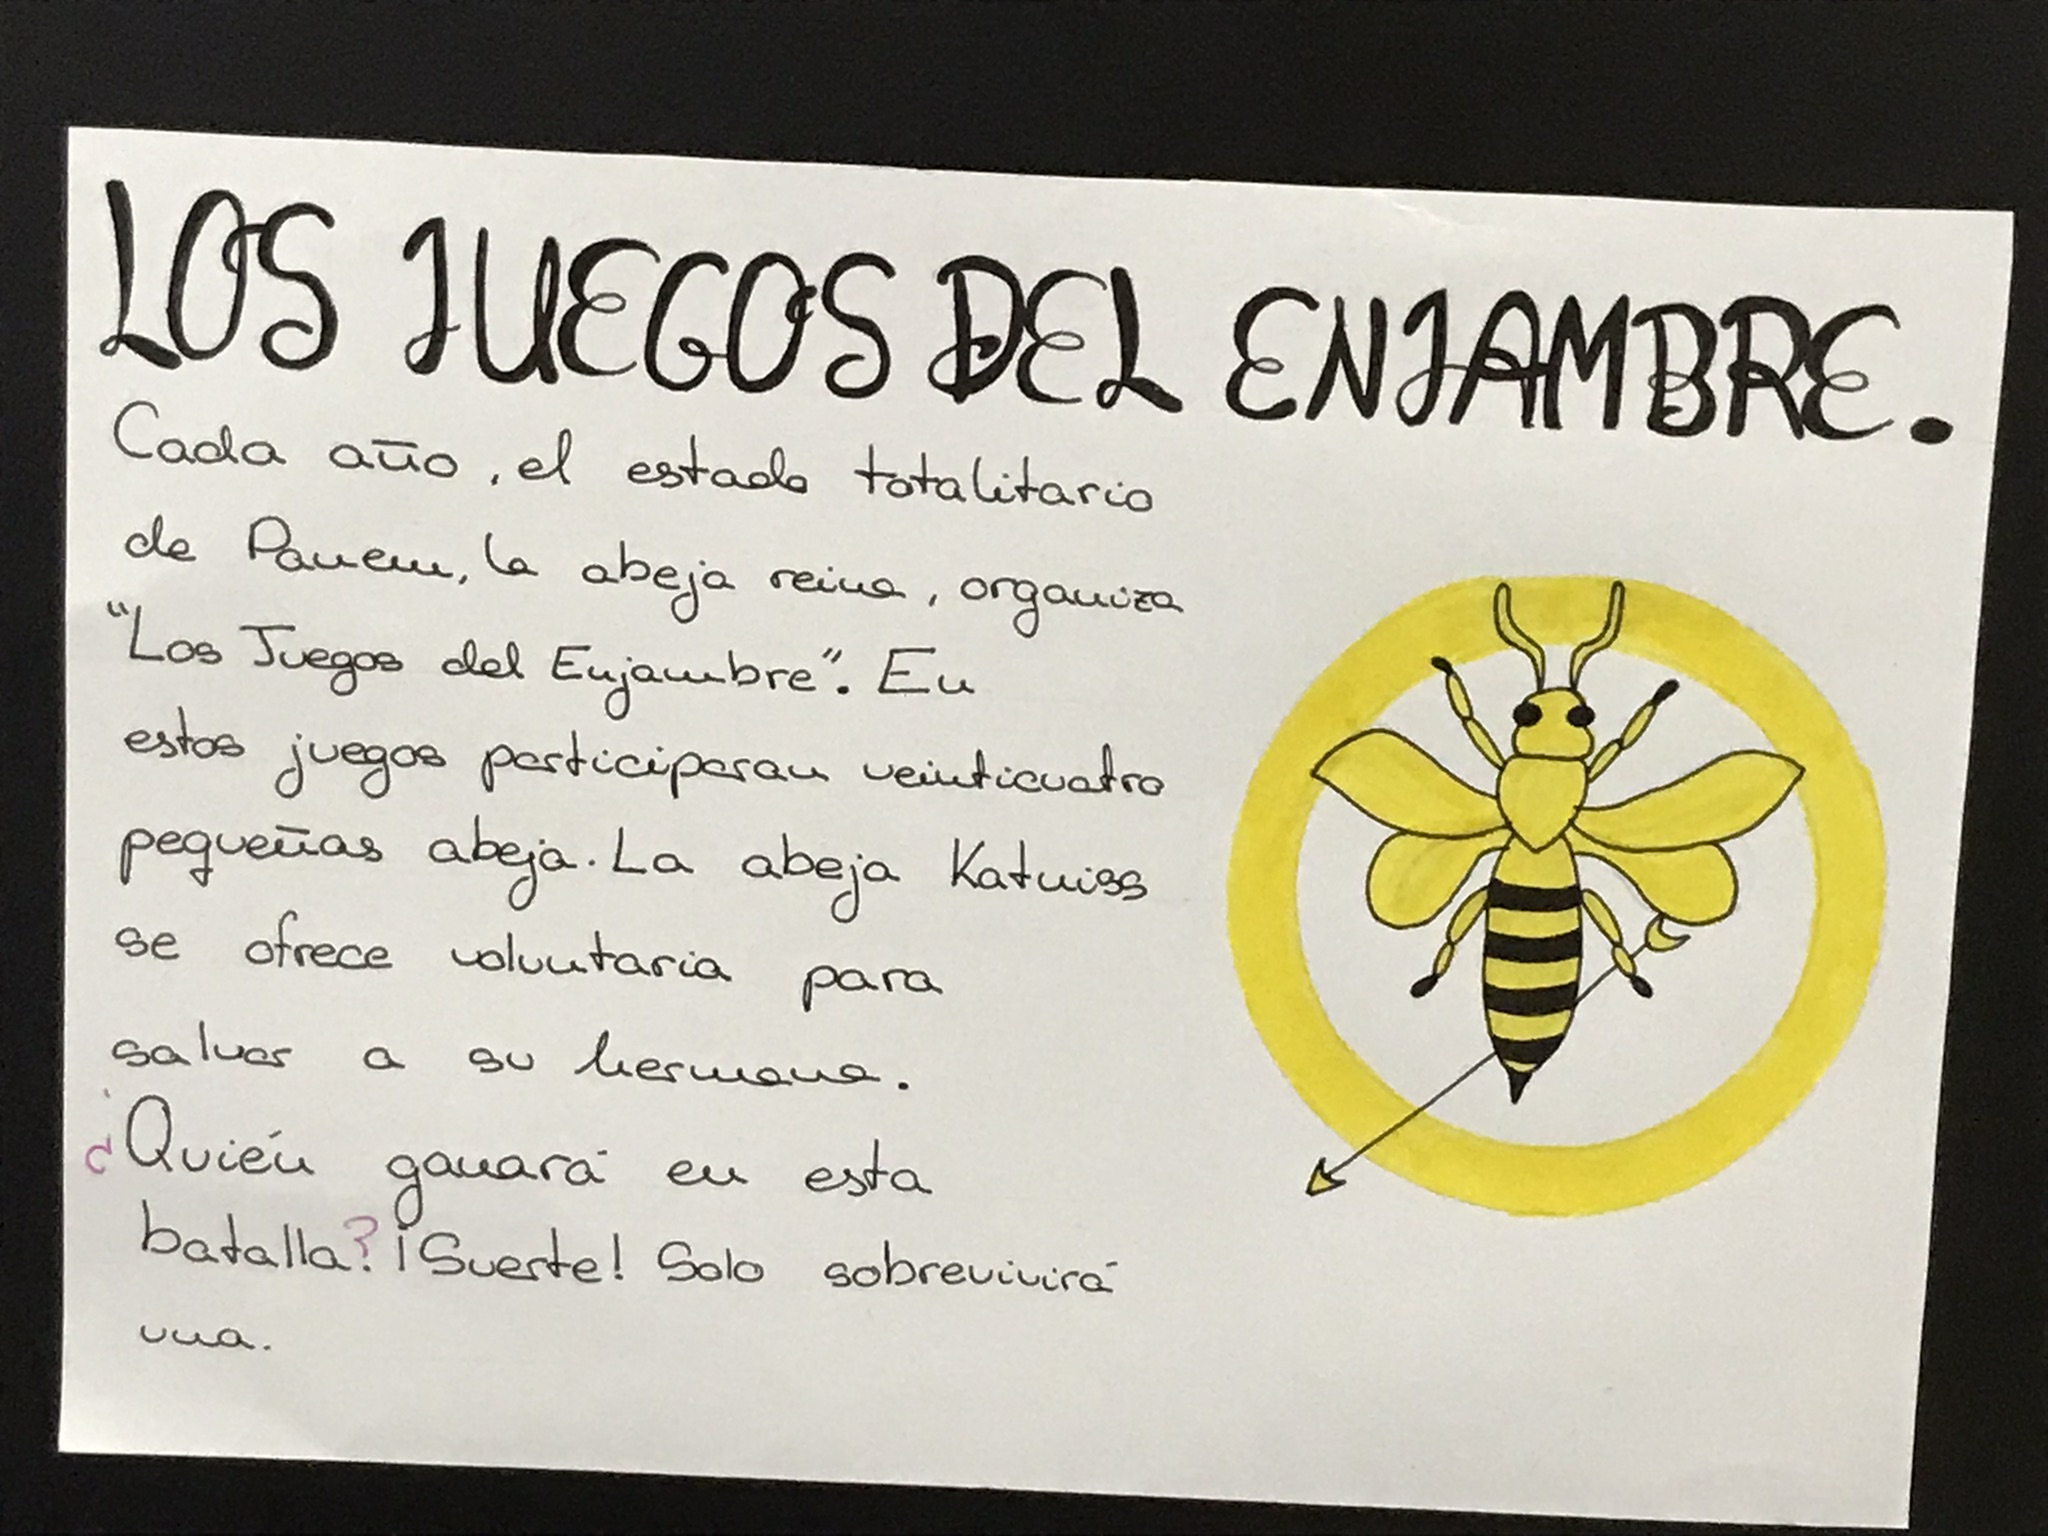 LOS JUEGOS DEL ENJAMBRE.
Cada año, el estado totalitario
de Panem, la abeja reina, organiza
"Los Juegos del Enjambre". En
estos juegos participaran veinticuatro
pequeñas abeja. La abeja Katniss
se ofrece voluntaria para
salvar a su hermana.
¿Quién ganará en esta
batalla? ¡Suerte! Solo sobrevivirá
una.